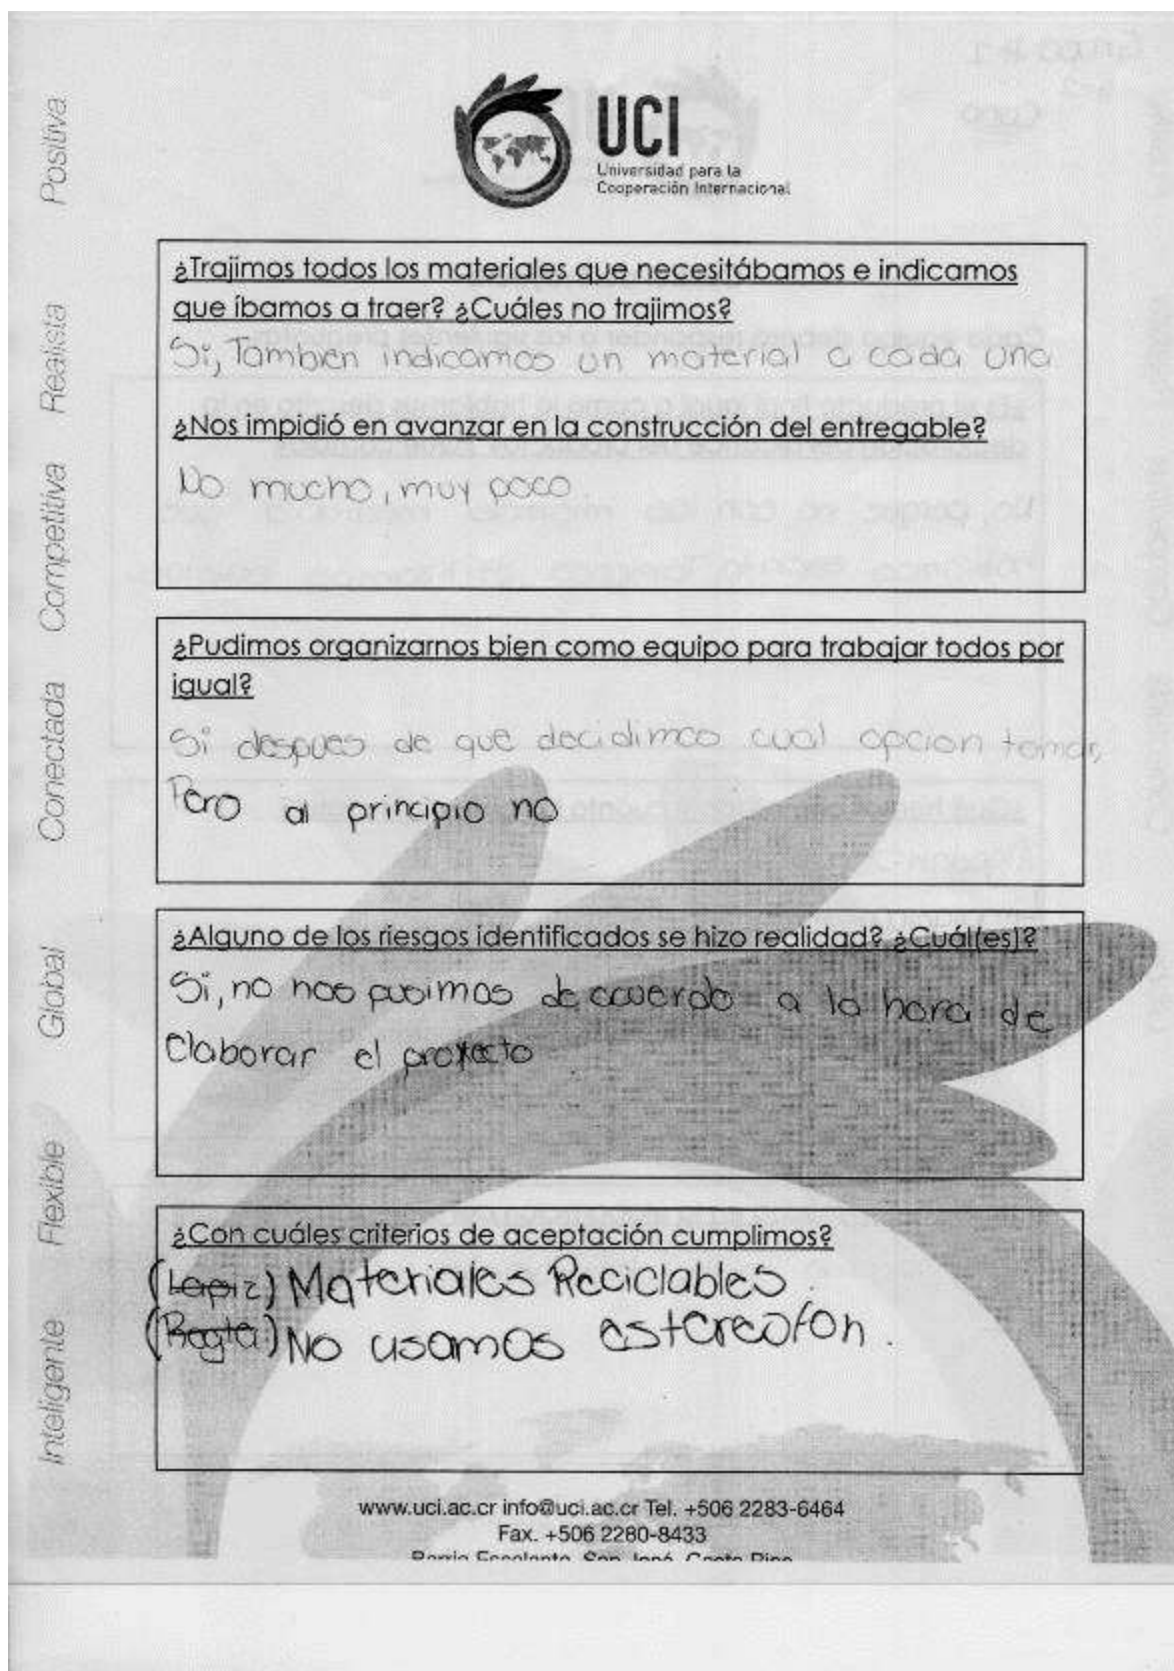 UCI
Universidad para la
Cooperación Internacional
Positiva
Realista
Competitiva
Conectada
Global
Flexible
Inteligente
¿Trajimos todos los materiales que necesitábamos e indicamos
que íbamos a traer? ¿Cuáles no trajimos?
Si, Tambien indicamos un material a cada una
¿Nos impidió en avanzar en la construcción del entregable?
No mucho, muy poco
¿Pudimos organizarnos bien como equipo para trabajar todos por
igual?
Si despues de que decidimos cual opcion tomar,
Pero al principio no
¿Alguno de los riesgos identificados se hizo realidad? ¿Cuál(es)?
Si, no nos pusimos de acuerdo a la hora de
Elaborar el proyecto
¿Con cuáles criterios de aceptación cumplimos?
(Lapiz) Materiales Reciclables.
(Regla) No usamos estereofon.
www.uci.ac.cr info@uci.ac.cr Tel. +506 2283-6464
Fax. +506 2280-8433
Barrio Escalante, San José, Costa Rica